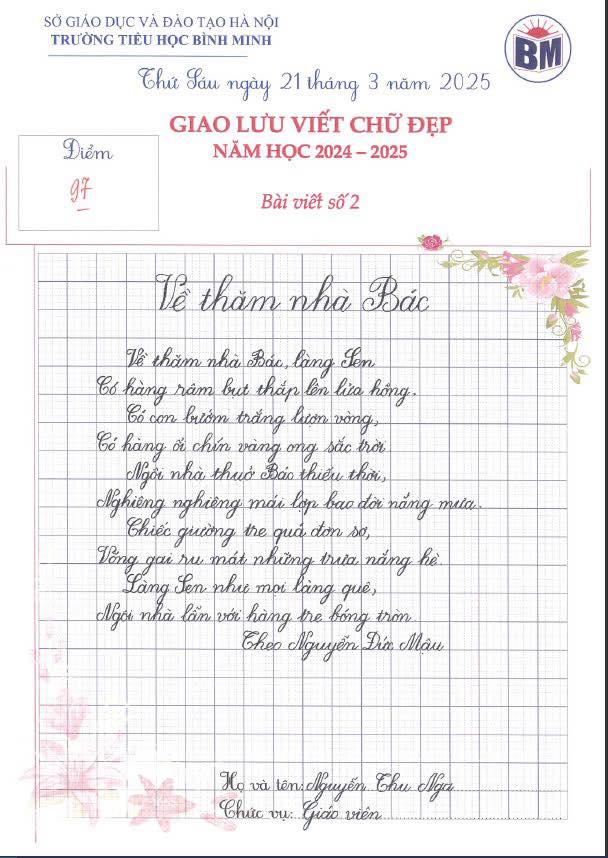 SỞ GIÁO DỤC VÀ ĐÀO TẠO HÀ NỘI
TRƯỜNG TIỂU HỌC BÌNH MINH
BM
Thứ Sáu ngày 21 tháng 3 năm 2025
GIAO LƯU VIẾT CHỮ ĐẸP
NĂM HỌC 2024 – 2025
Điểm
97
Bài viết số 2
Về thăm nhà Bác
Về thăm nhà Bác, làng Sen
Có hàng râm bụt thắp lên lửa hồng.
Có con bướm trắng lượn vòng,
Có hàng ổi chín vàng ong sắc trời
Ngôi nhà thuở Bác thiếu thời,
Nghiêng nghiêng mái lợp bao đời nắng mưa.
Chiếc giường tre quá đơn sơ,
Võng gai ru mát những trưa nắng hè.
Làng Sen như mọi làng quê,
Ngôi nhà lẫn với hàng tre bóng tròn
Theo Nguyễn Đức Mậu
Họ và tên: Nguyễn Thu Nga
Chức vụ: Giáo viên